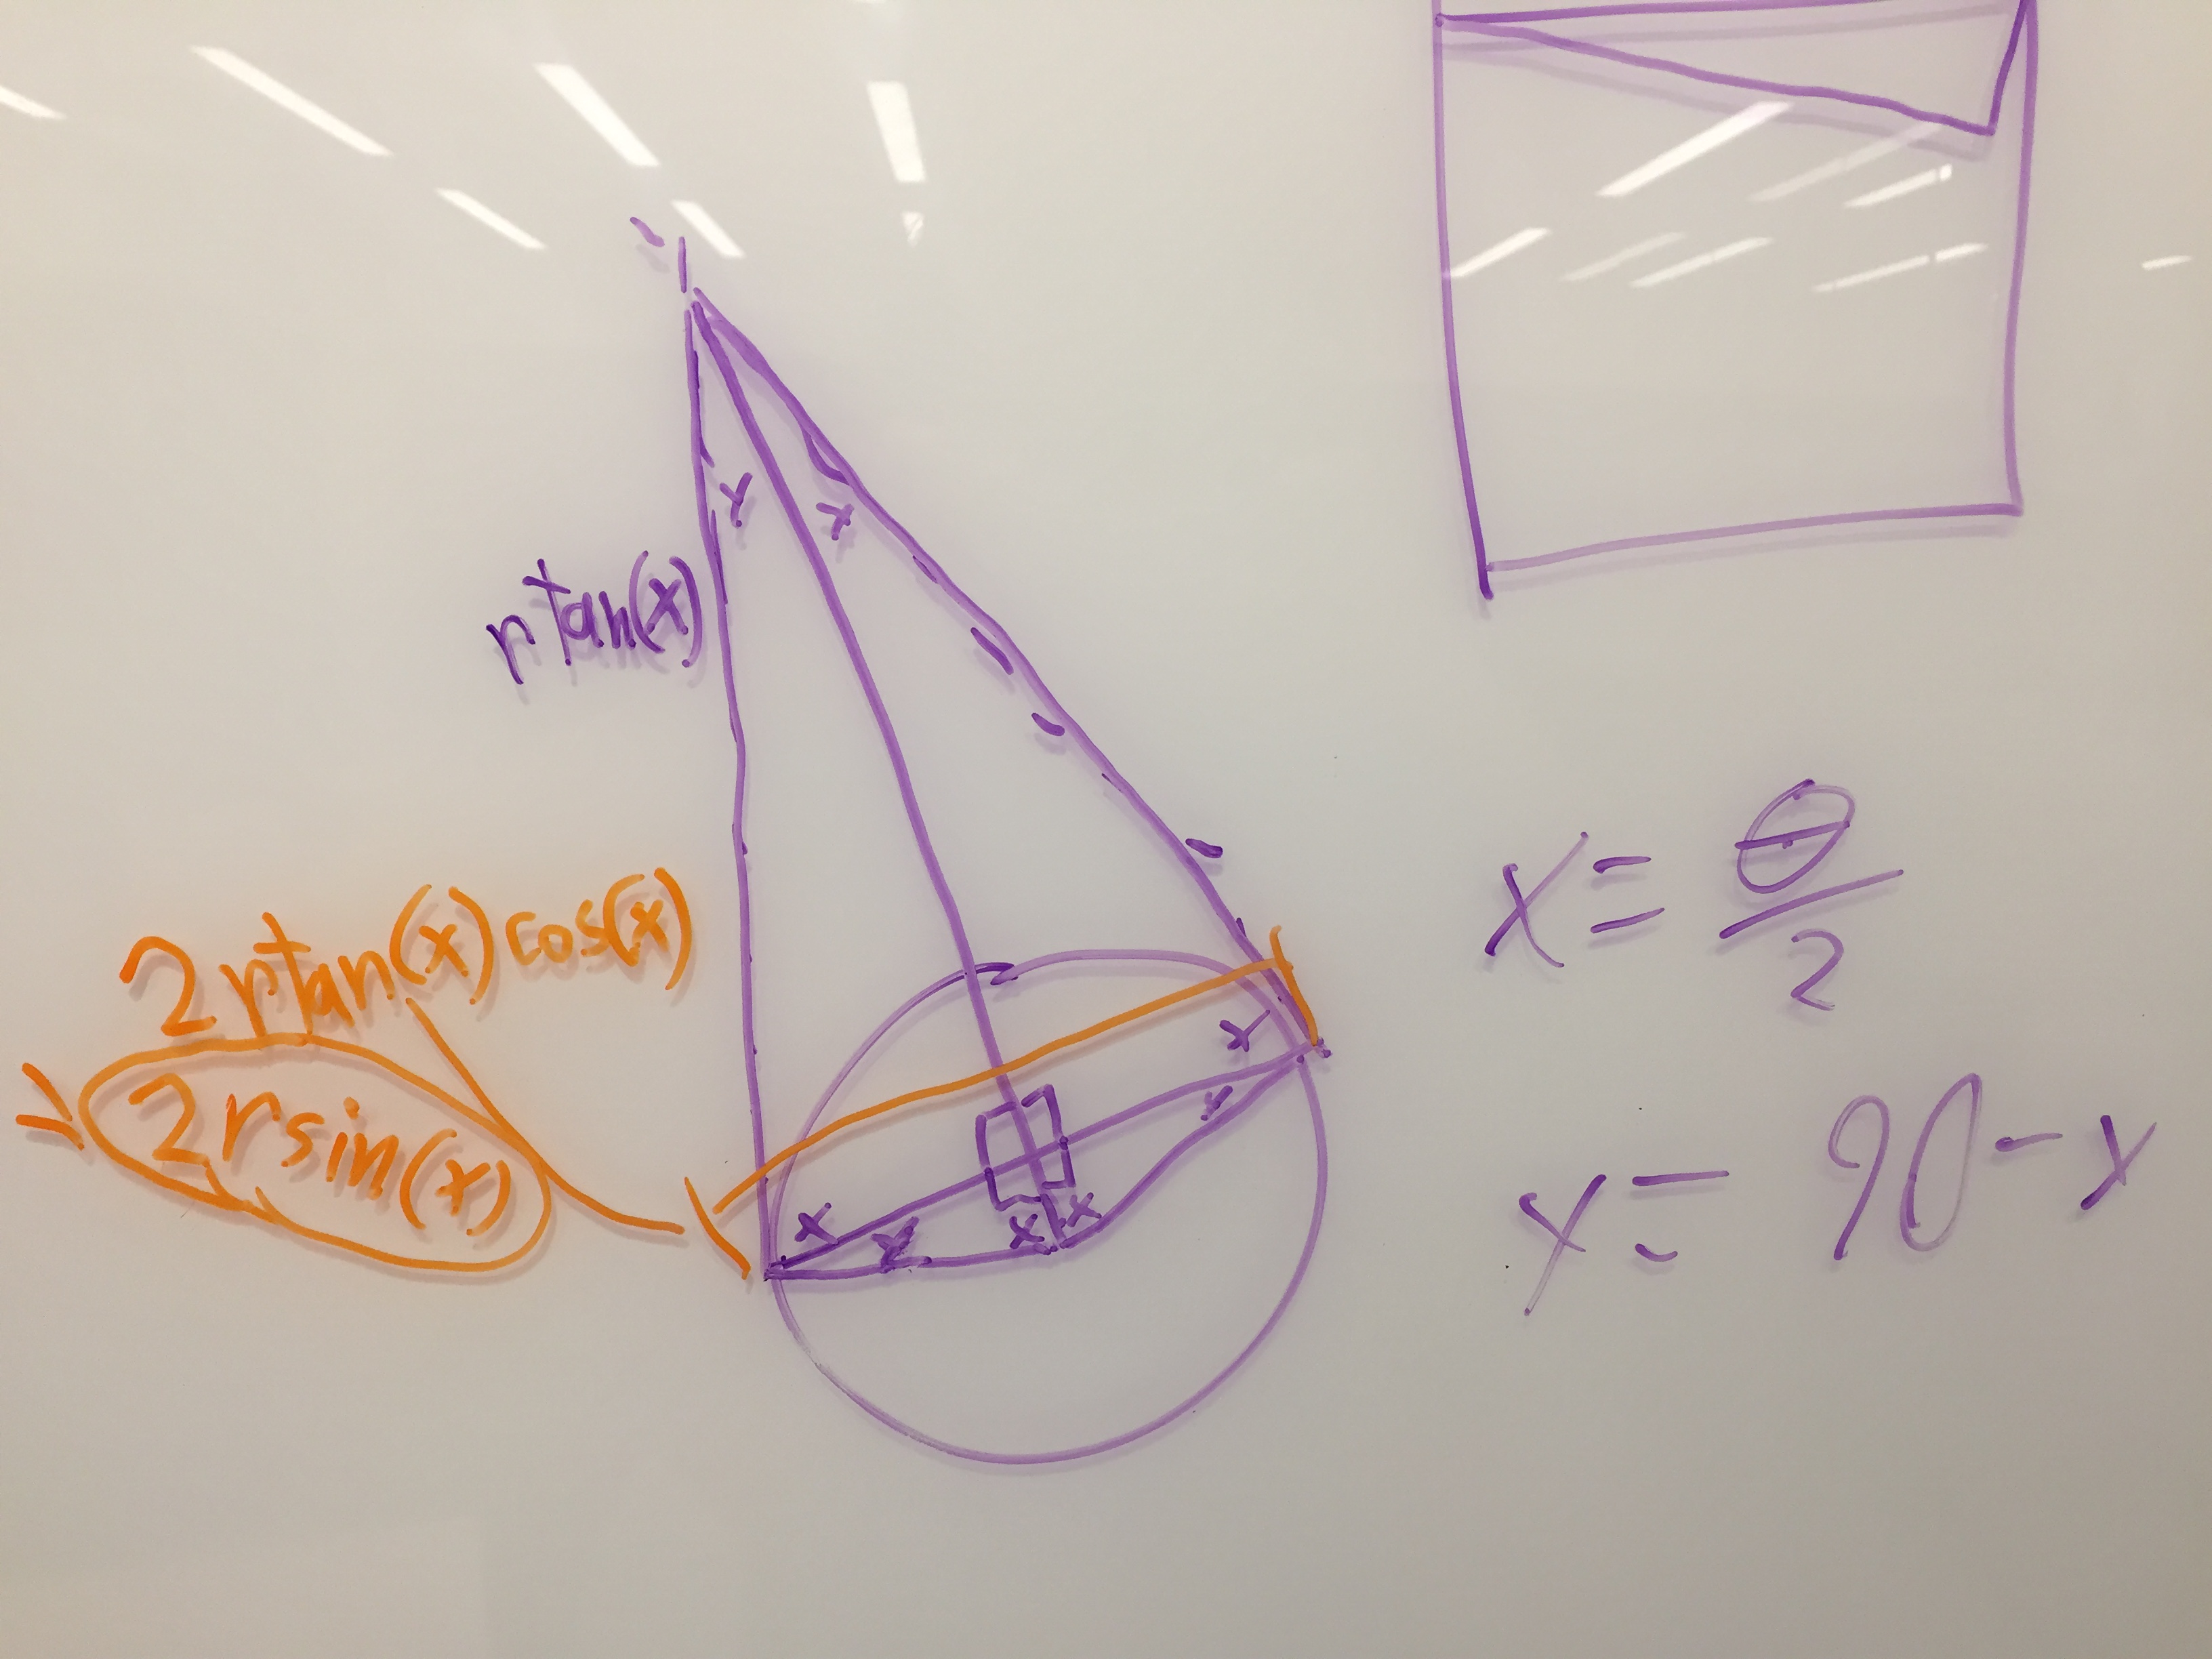 Y
Y
r tan(x)
2 r tan(x) cos(x)
2 r sin(x)
x
Y
x
Y
x
x
x = θ/2
y = 90 - x